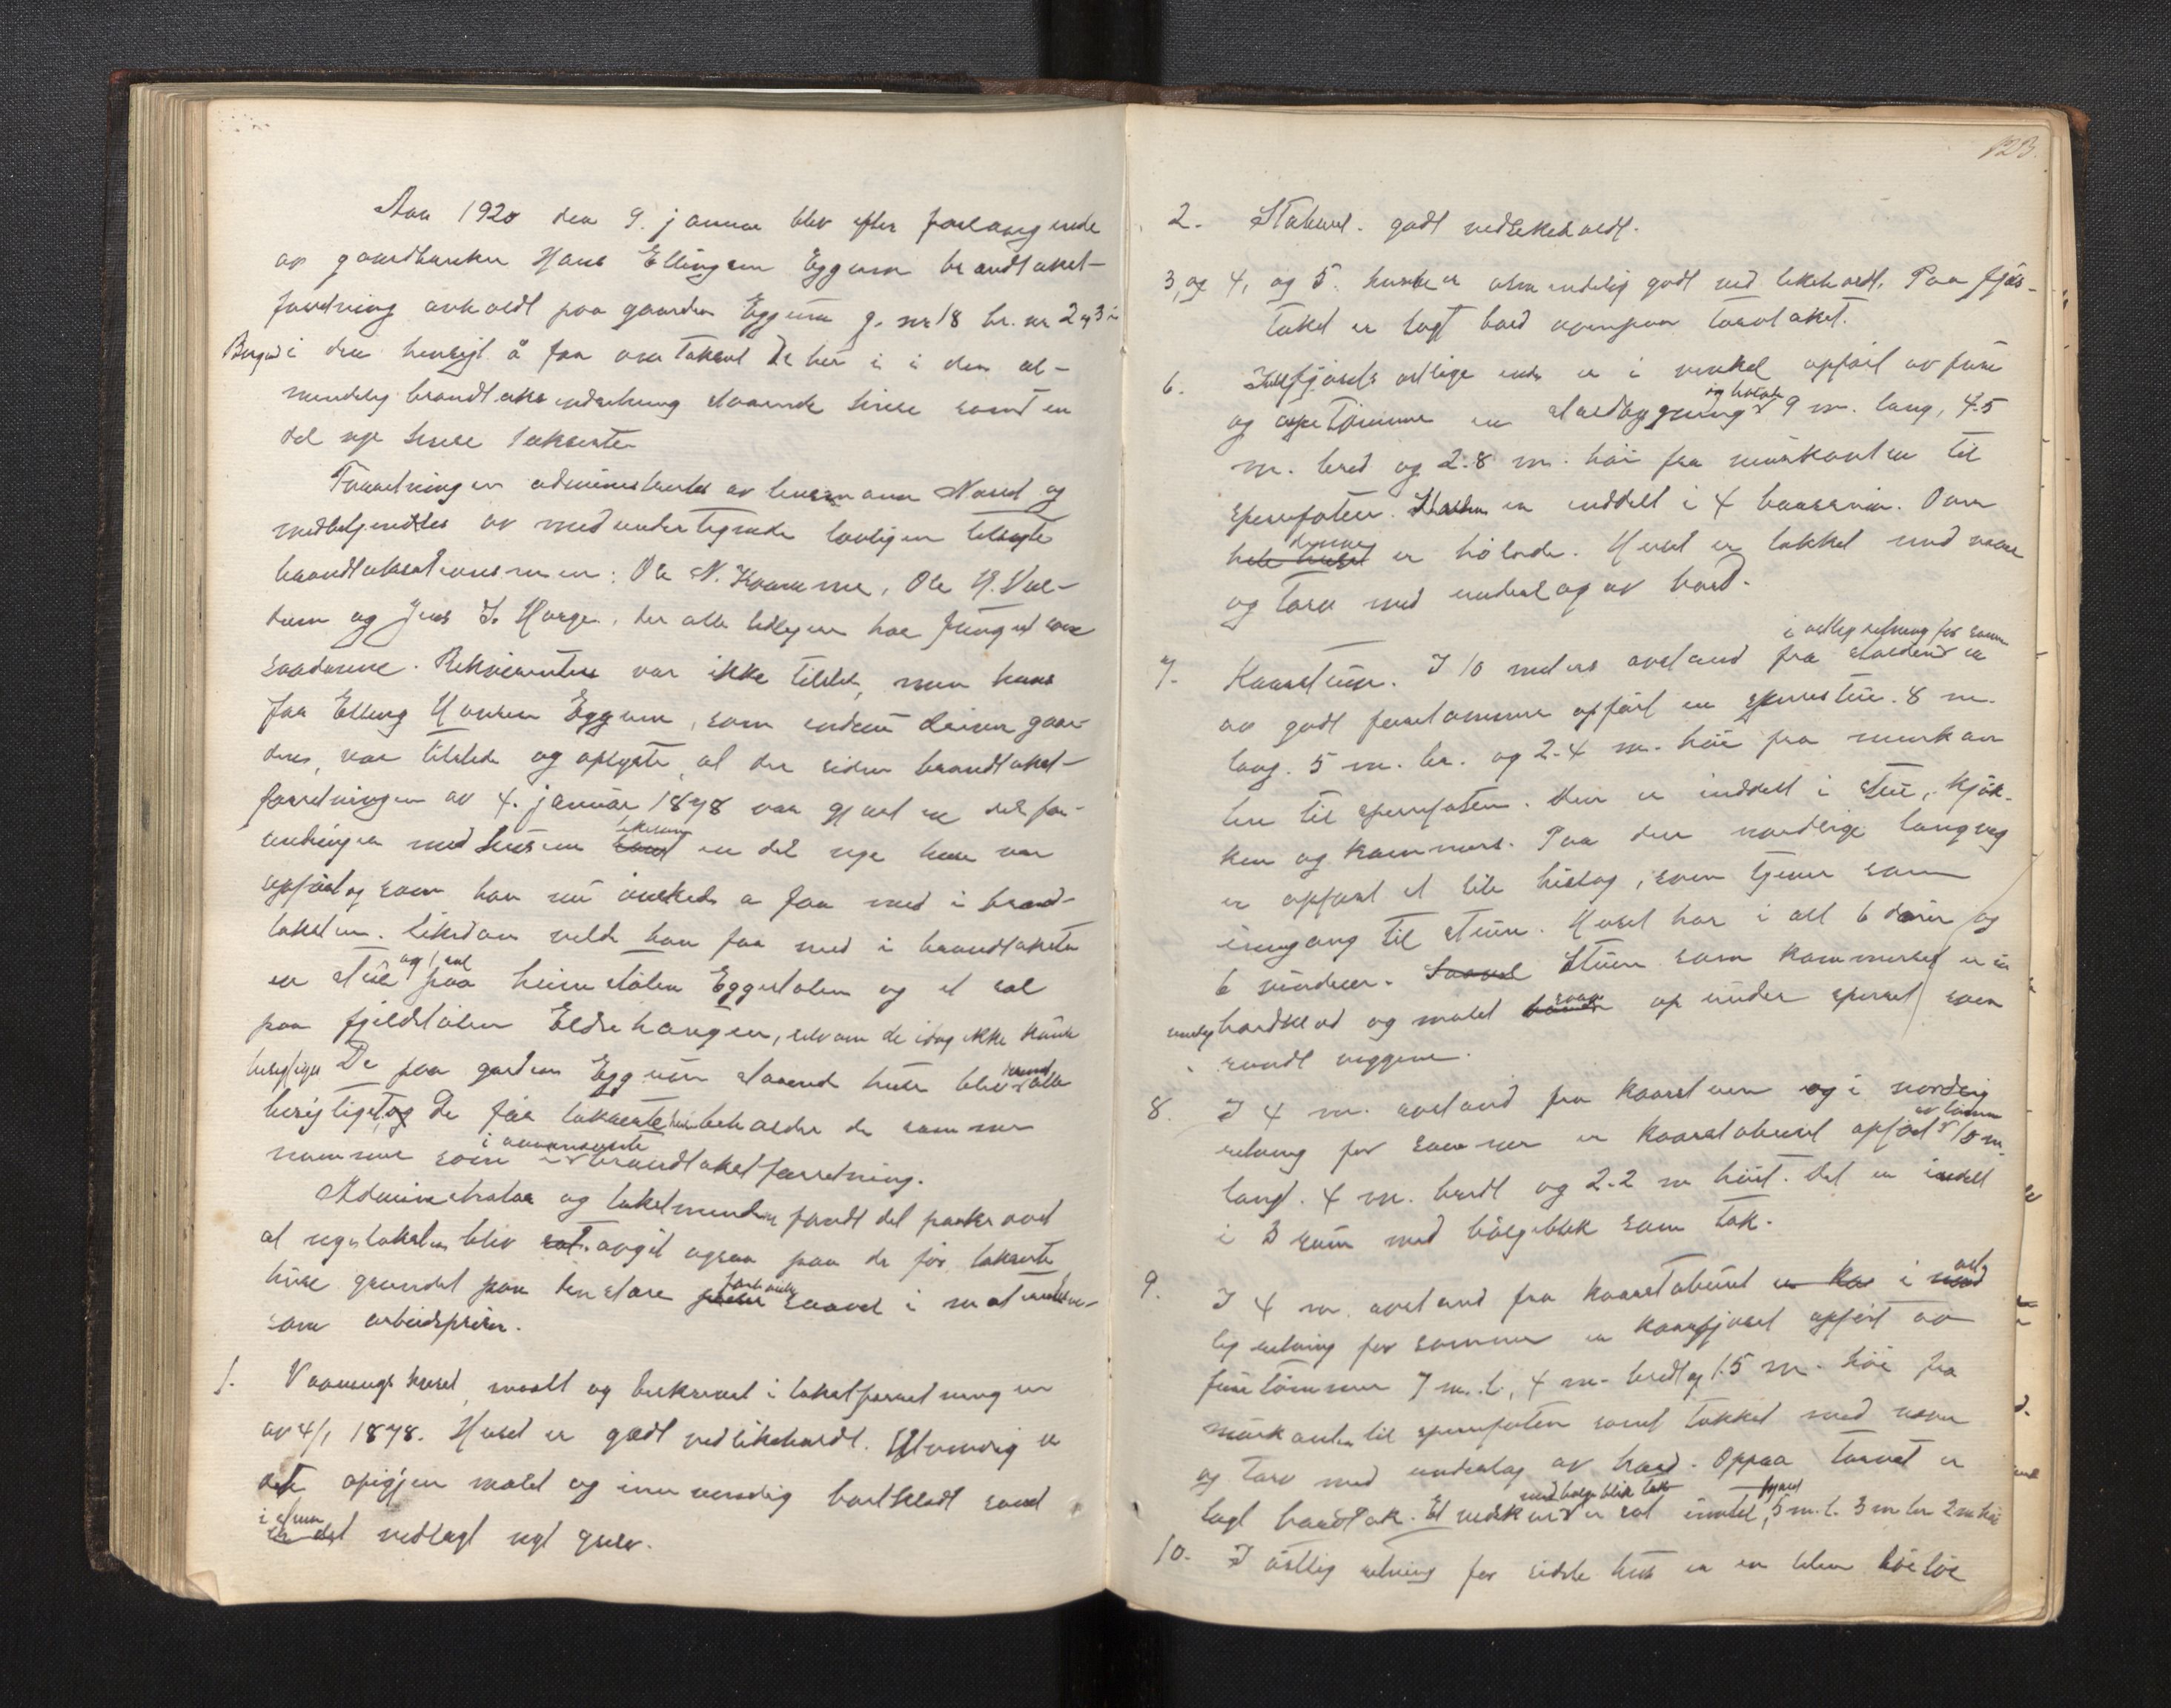 Aar 1920 den 9. januar blev efter forlangende
av gaardbruker Hans Ellingsen Eggum brandtakst-
forretning avholdt paa gaarden Eggum g. nr 18 br. nr 2 og 3 i
Borgund i den hensigt å faa omtaksert de her i i den al-
mindelig brandtaks indretning staaende huse samt en
del nye huse taksert
Forretningen administrertes av lensmann Nord og
medbetjentes av medundertegnede lovligen
brandtakstationsmenn: Ole N. Kvamme, Ole H. Vol-
dum og Jens J. Hauge, der alle tidligere har fungert som
saadanne. Rekvirenten var ikke tilstede, men hans
søn Elling Hansen Eggum, som endem driver gaar-
den, var tilstede og oplyste, at der siden brandtakst-
forretningen av 4. januar 1878 var gjort en del for-
andringer med husene likesom en del nye huse var
opført og som han nu ønskede a faa med i brand-
taksten. Likedan vilde han faa med i brandtaksten
en stue og 1 sel paa heimstølen Eggestølen og et sel
paa fjeldstølen Eldrehaugen, selvom de idag ikke kunde
besigtiges De paa gaarden Eggum staaende huse blev alle
besigtiget og De før takserte hus beholder de samme
nummer som i brandtakstforretning.
Administrator og takstmendene fandt det paakrævet
at nye taksten blev sat avgit ogsaa paa de før takserte
huse grundet paa den store saavel i material-
som arbeidsprisen.
1. Vaaningshuset, maalt og beskrevet i takstforretningen
av 4/1 1878. Huset er godt vedlikeholdt. Utvendig er
det opigjen malet og innvendig bordklædt samt
i stuen er det nedlagt nyt gulv.
123.
2. Stabur. godt vedlikeholdt.
3, og 4, og 5. husene almindelig godt vedlikeholdt. Paa fjøs-
taket er lagt bord ovenpaa torvtaket.
6. I fjøsets østlige ende er i vinkel opført av furu
og ospetømmer en staldbygning 9 m. lang, 4.5
m. bred og 2.8 m. høi fra murkanten til
sperrefoten. Stalden er inddelt i 4 baasrum. Over
hele huset denne er høilade. Huset er takket med never
og torv med underlag av bord.
7. Kaarstuen. I 10 meters avstand fra stalden i østlig retning for samme er
av godt furutømmer opført en sperrestue. 8 m.
lang. 5 m. br. og 2.4 m. høi fra murkan
ten til sperrefoten. Den er inddelt i stue, kjøk-
ken og kammers. Paa den nordlige langveg
er opført et lite bislag, som tjener som
inngang til stuen. Huset har i alt 6 dører og
6 vinduer. Saavel Stuen som kammerset er in
vendig bordklæd og malet op under sperret som
rundt veggene.
8. I 4 m. avstand fra kaarstuen og i nordlig
retning for samme er kaarstaburet opført av tømmer 10 m.
langt. 4 m. bredt og 2.2 m høit. Det er indelt
i 3 rum med bølgeblik som tak.
9. I 4 m. avstand fra kaarstaburet i øst-
lig retning for samme er kaarfjøset opført av
furutømmer 7 m. l., 4 m. bredt og 1.5 m. høi fra
murkanten til sperrefoten samt takket med never
og torv med underlag av bord. Oppaa torvet er
lagt bordtak. Et vedskur med bølgeblik tak er sat inntil, 5 m. l. 3 m br 2 m høi
10. I østlig retning for sidste hus er en liten høiløe